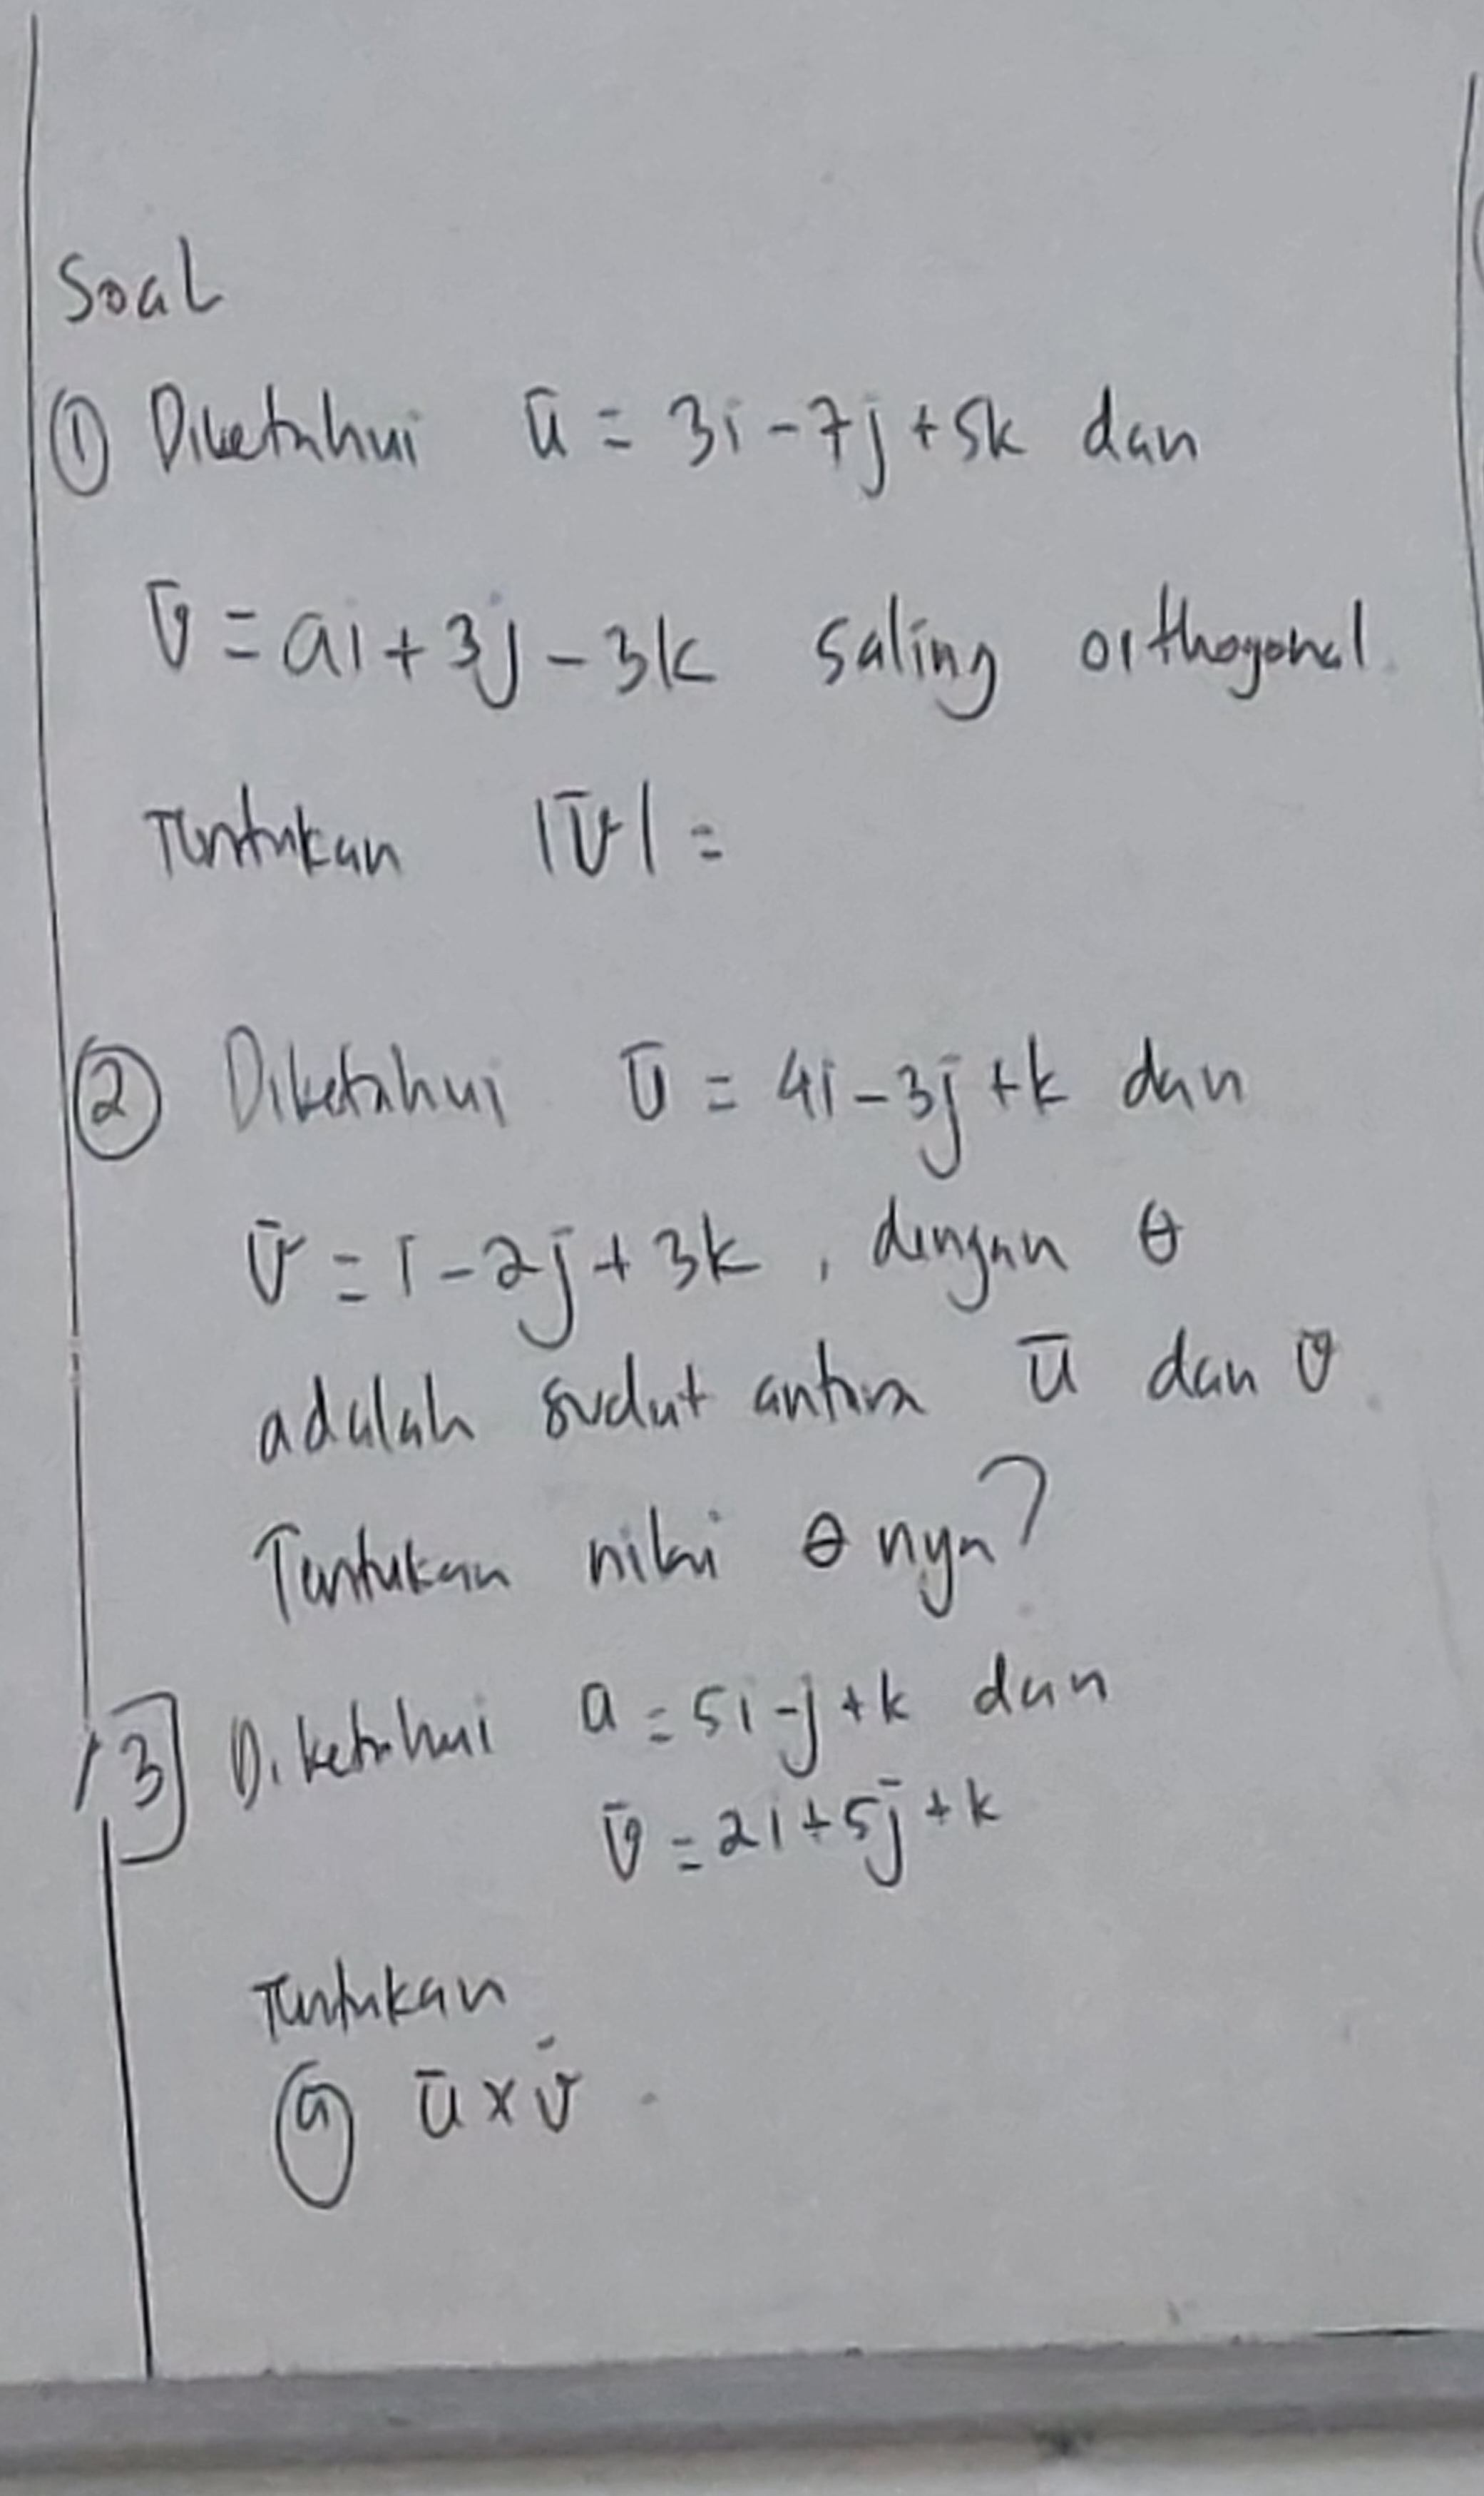 Soal
① Diketahui ū = 3i - 7j + 5k dan
v̄ = ai + 3j - 3k saling orthogonal.
Tentukan |v̄| =
② Diketahui ū = 4i - 3j + k dan
v̄ = i - 2j + 3k , dengan θ
adalah sudut antara ū dan v̄.
Tentukan nilai θ nya?
3] Diketahui a = 5i - j + k dan
v̄ = 2i + 5j + k
Tentukan
ⓐ ū x v̄.